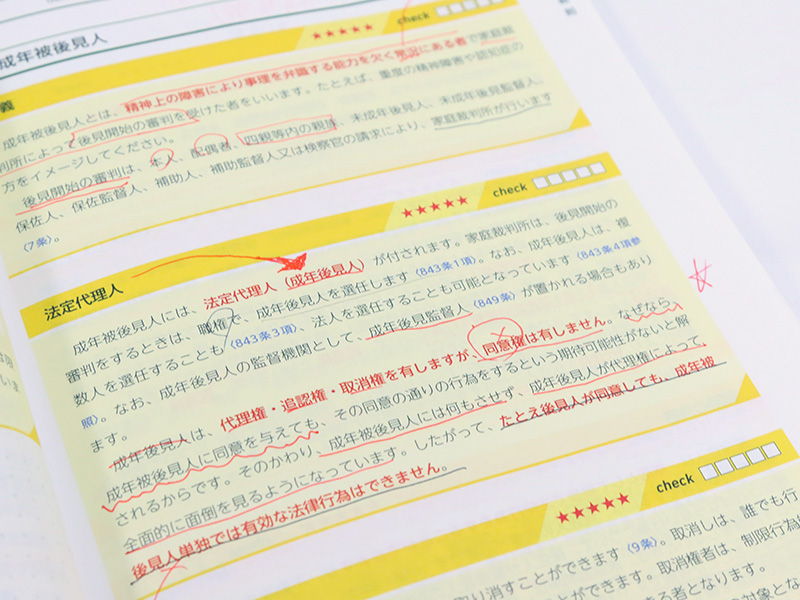 成年被後見人
★★★★★ check
義
成年被後見人とは、精神上の障害により事理を弁識する能力を欠く常況にある者で家庭裁
判所によって後見開始の審判を受けた者をいいます。たとえば、重度の精神障害や認知症の
方をイメージしてください。
後見開始の審判は、本人、配偶者、四親等内の親族、未成年後見人、未成年後見監督人、
保佐人、保佐監督人、補助人、補助監督人又は検察官の請求により、家庭裁判所が行います
〈7条〉。
法定代理人 ★★★★★ check
成年被後見人には、法定代理人（成年後見人）が付されます。家庭裁判所は、後見開始の
審判をするときは、職権で、成年後見人を選任します〈843条1項〉。なお、成年後見人は、複
数人を選任することも〈843条3項〉、法人を選任することも可能となっています〈843条4項参
照〉。なお、成年後見人の監督機関として、成年後見監督人〈849条〉が置かれる場合もあり
ます。
成年後見人は、代理権・追認権・取消権を有しますが、同意権は有しません。なぜなら、
成年被後見人に同意を与えても、その同意の通りの行為をするという期待可能性がないと解
されるからです。そのかわり、成年被後見人には何もさせず、成年後見人が代理権によって、
全面的に面倒を見るようになっています。したがって、たとえ後見人が同意しても、成年被
後見人単独では有効な法律行為はできません。
★★★★★ check
り消すことができます〈9条〉。取消しは、誰でも行
ことができます。取消権者は、制限行為
る者となります。
の対象とな